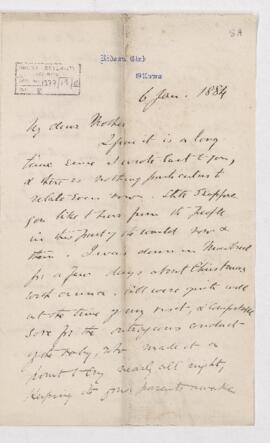 8A
Rideau Club
Ottawa
6 Jan. 1884
My dear Mother
I fear it is a long
time since I wrote last to you,
& there is nothing particular to
relate even now. Still I suppose
you like to hear from the people
in this part of the world now &
then. I was down in Montreal
for a few days about Christmas
with All were quite well
at the time of my visit, & comfortable
save for the outrageous conduct
of the baby, who made it a
point to cry nearly all night,
keeping its poor parents awake